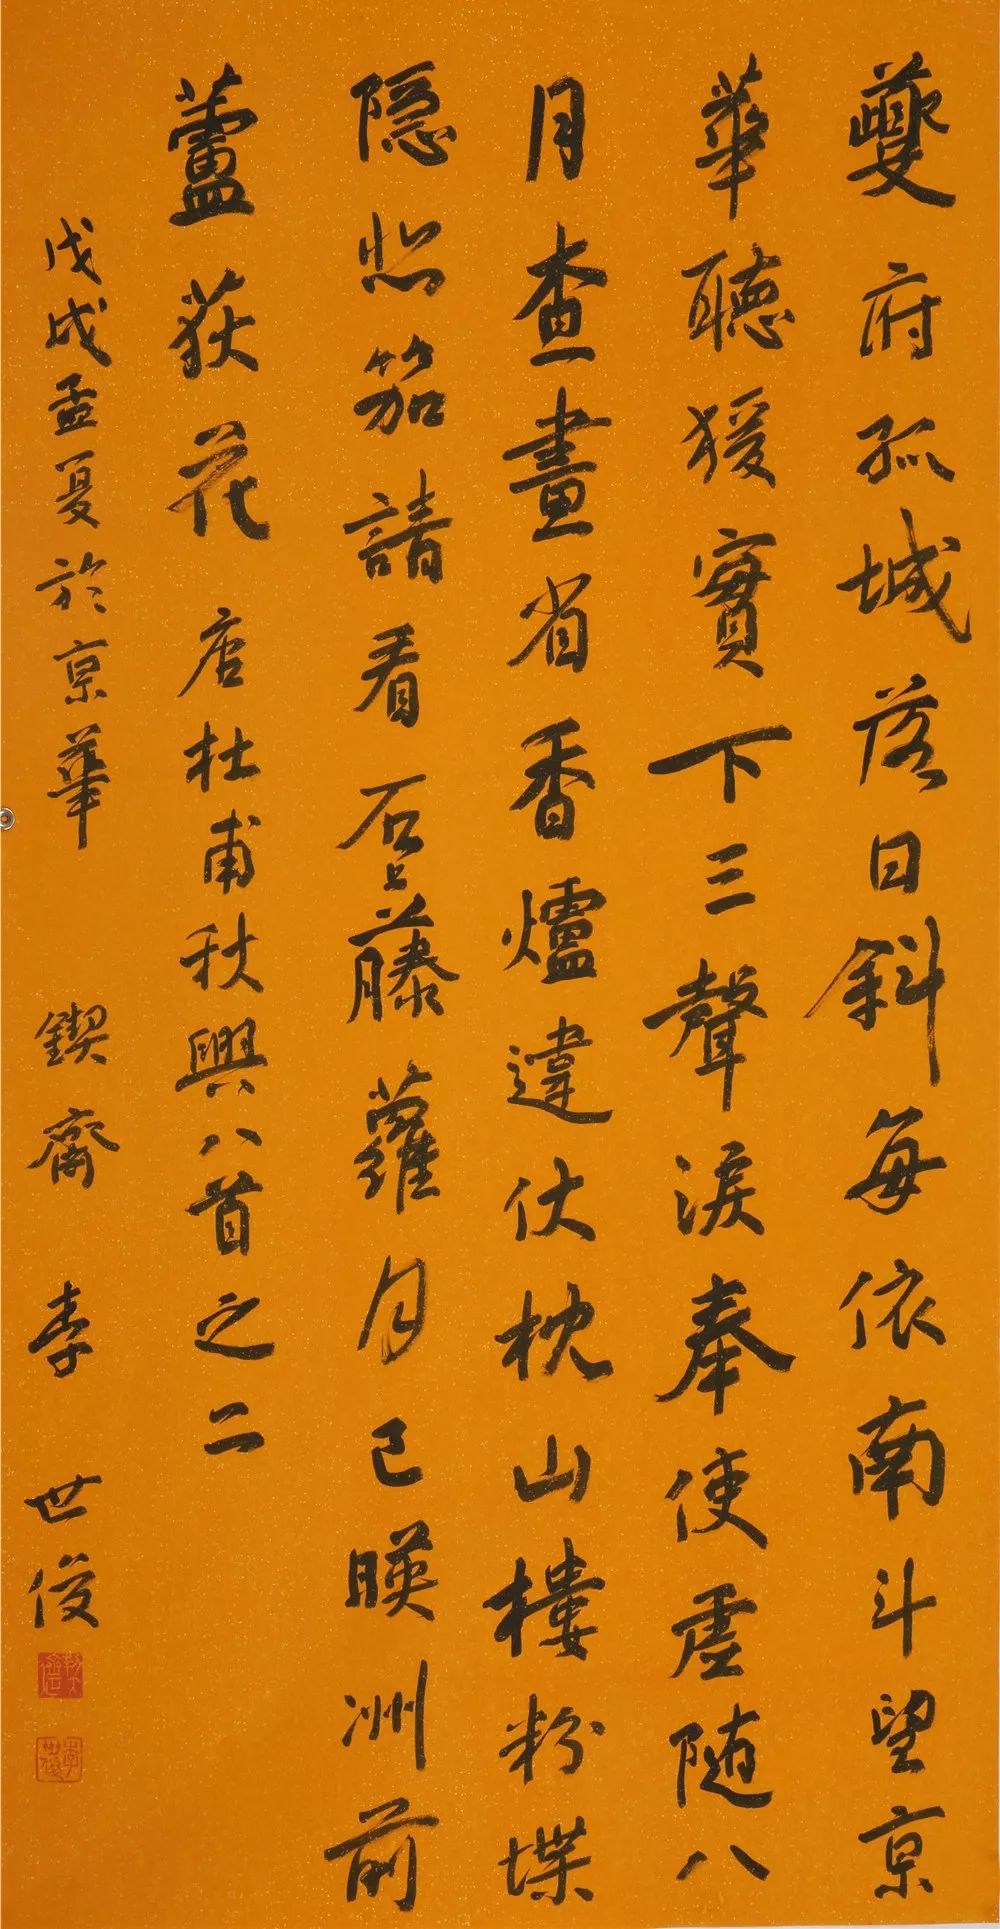 夔府孤城落日斜每依南斗望京
華聽猨實下三聲淚奉使虛隨八
月查畫省香爐違伏枕山樓粉堞
隱悲笳請看石上藤蘿月已暎洲前
蘆荻花 唐杜甫秋興八首之二
戊戌孟夏於京華 鍥齋 李世俊